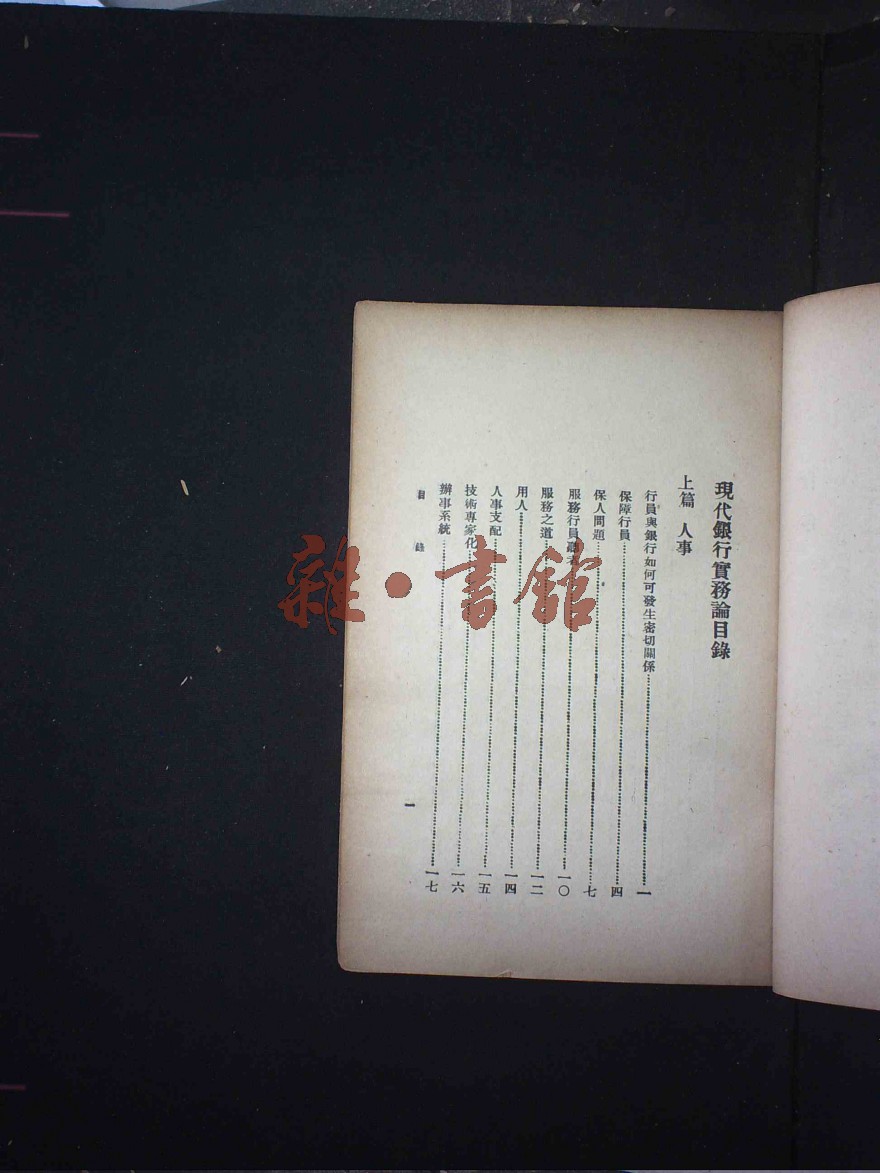 現代銀行實務論目錄
上篇 人事
行員與銀行如何可發生密切關係 一
保障行員 四
保人問題 七
服務行員 一〇
服務之道 一二
用人 一四
人事支配 一五
技術專家化 一六
辦事系統 一七
目錄
一
雜·書館